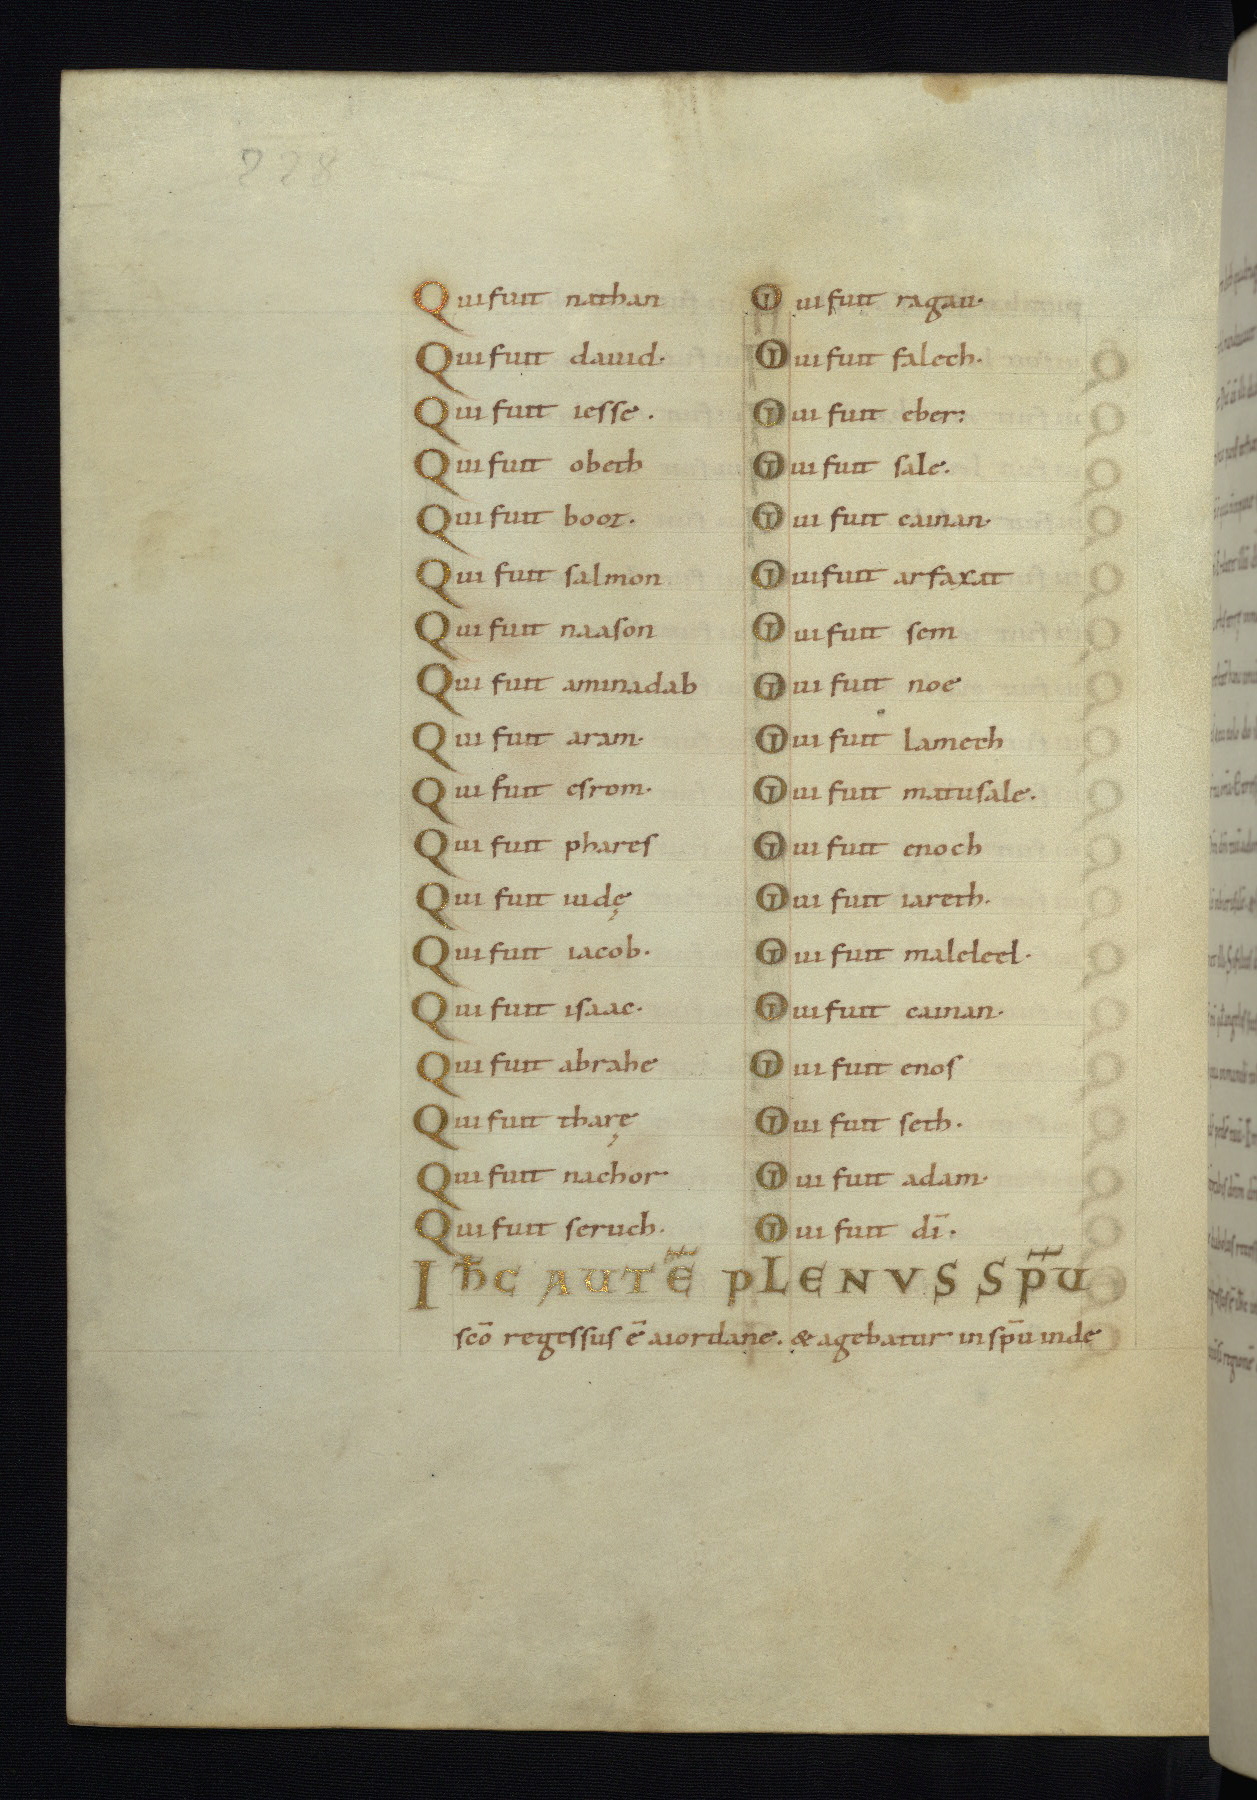 228
Qui fuit nathan
Qui fuit dauid.
Qui fuit iesse.
Qui fuit obeth
Qui fuit booz.
Qui fuit salmon
Qui fuit naason
Qui fuit aminadab
Qui fuit aram.
Qui fuit esrom.
Qui fuit phares
Qui fuit iudę
Qui fuit iacob.
Qui fuit isaac.
Qui fuit abrahe
Qui fuit tharę
Qui fuit nachor
Qui fuit seruch.
Qui fuit ragau.
Qui fuit falech.
Qui fuit eber:
Qui fuit sale.
Qui fuit cainan.
Qui fuit arfaxat
Qui fuit sem
Qui fuit noe
Qui fuit lamech
Qui fuit matusale.
Qui fuit enoch
Qui fuit iareth.
Qui fuit maleleel.
Qui fuit cainan.
Qui fuit enos
Qui fuit seth.
Qui fuit adam.
Qui fuit dī.
IħC AUTĒ PLENVS SP̄U
scō regessus ē a iordane. & agebatur in sp̄u in de